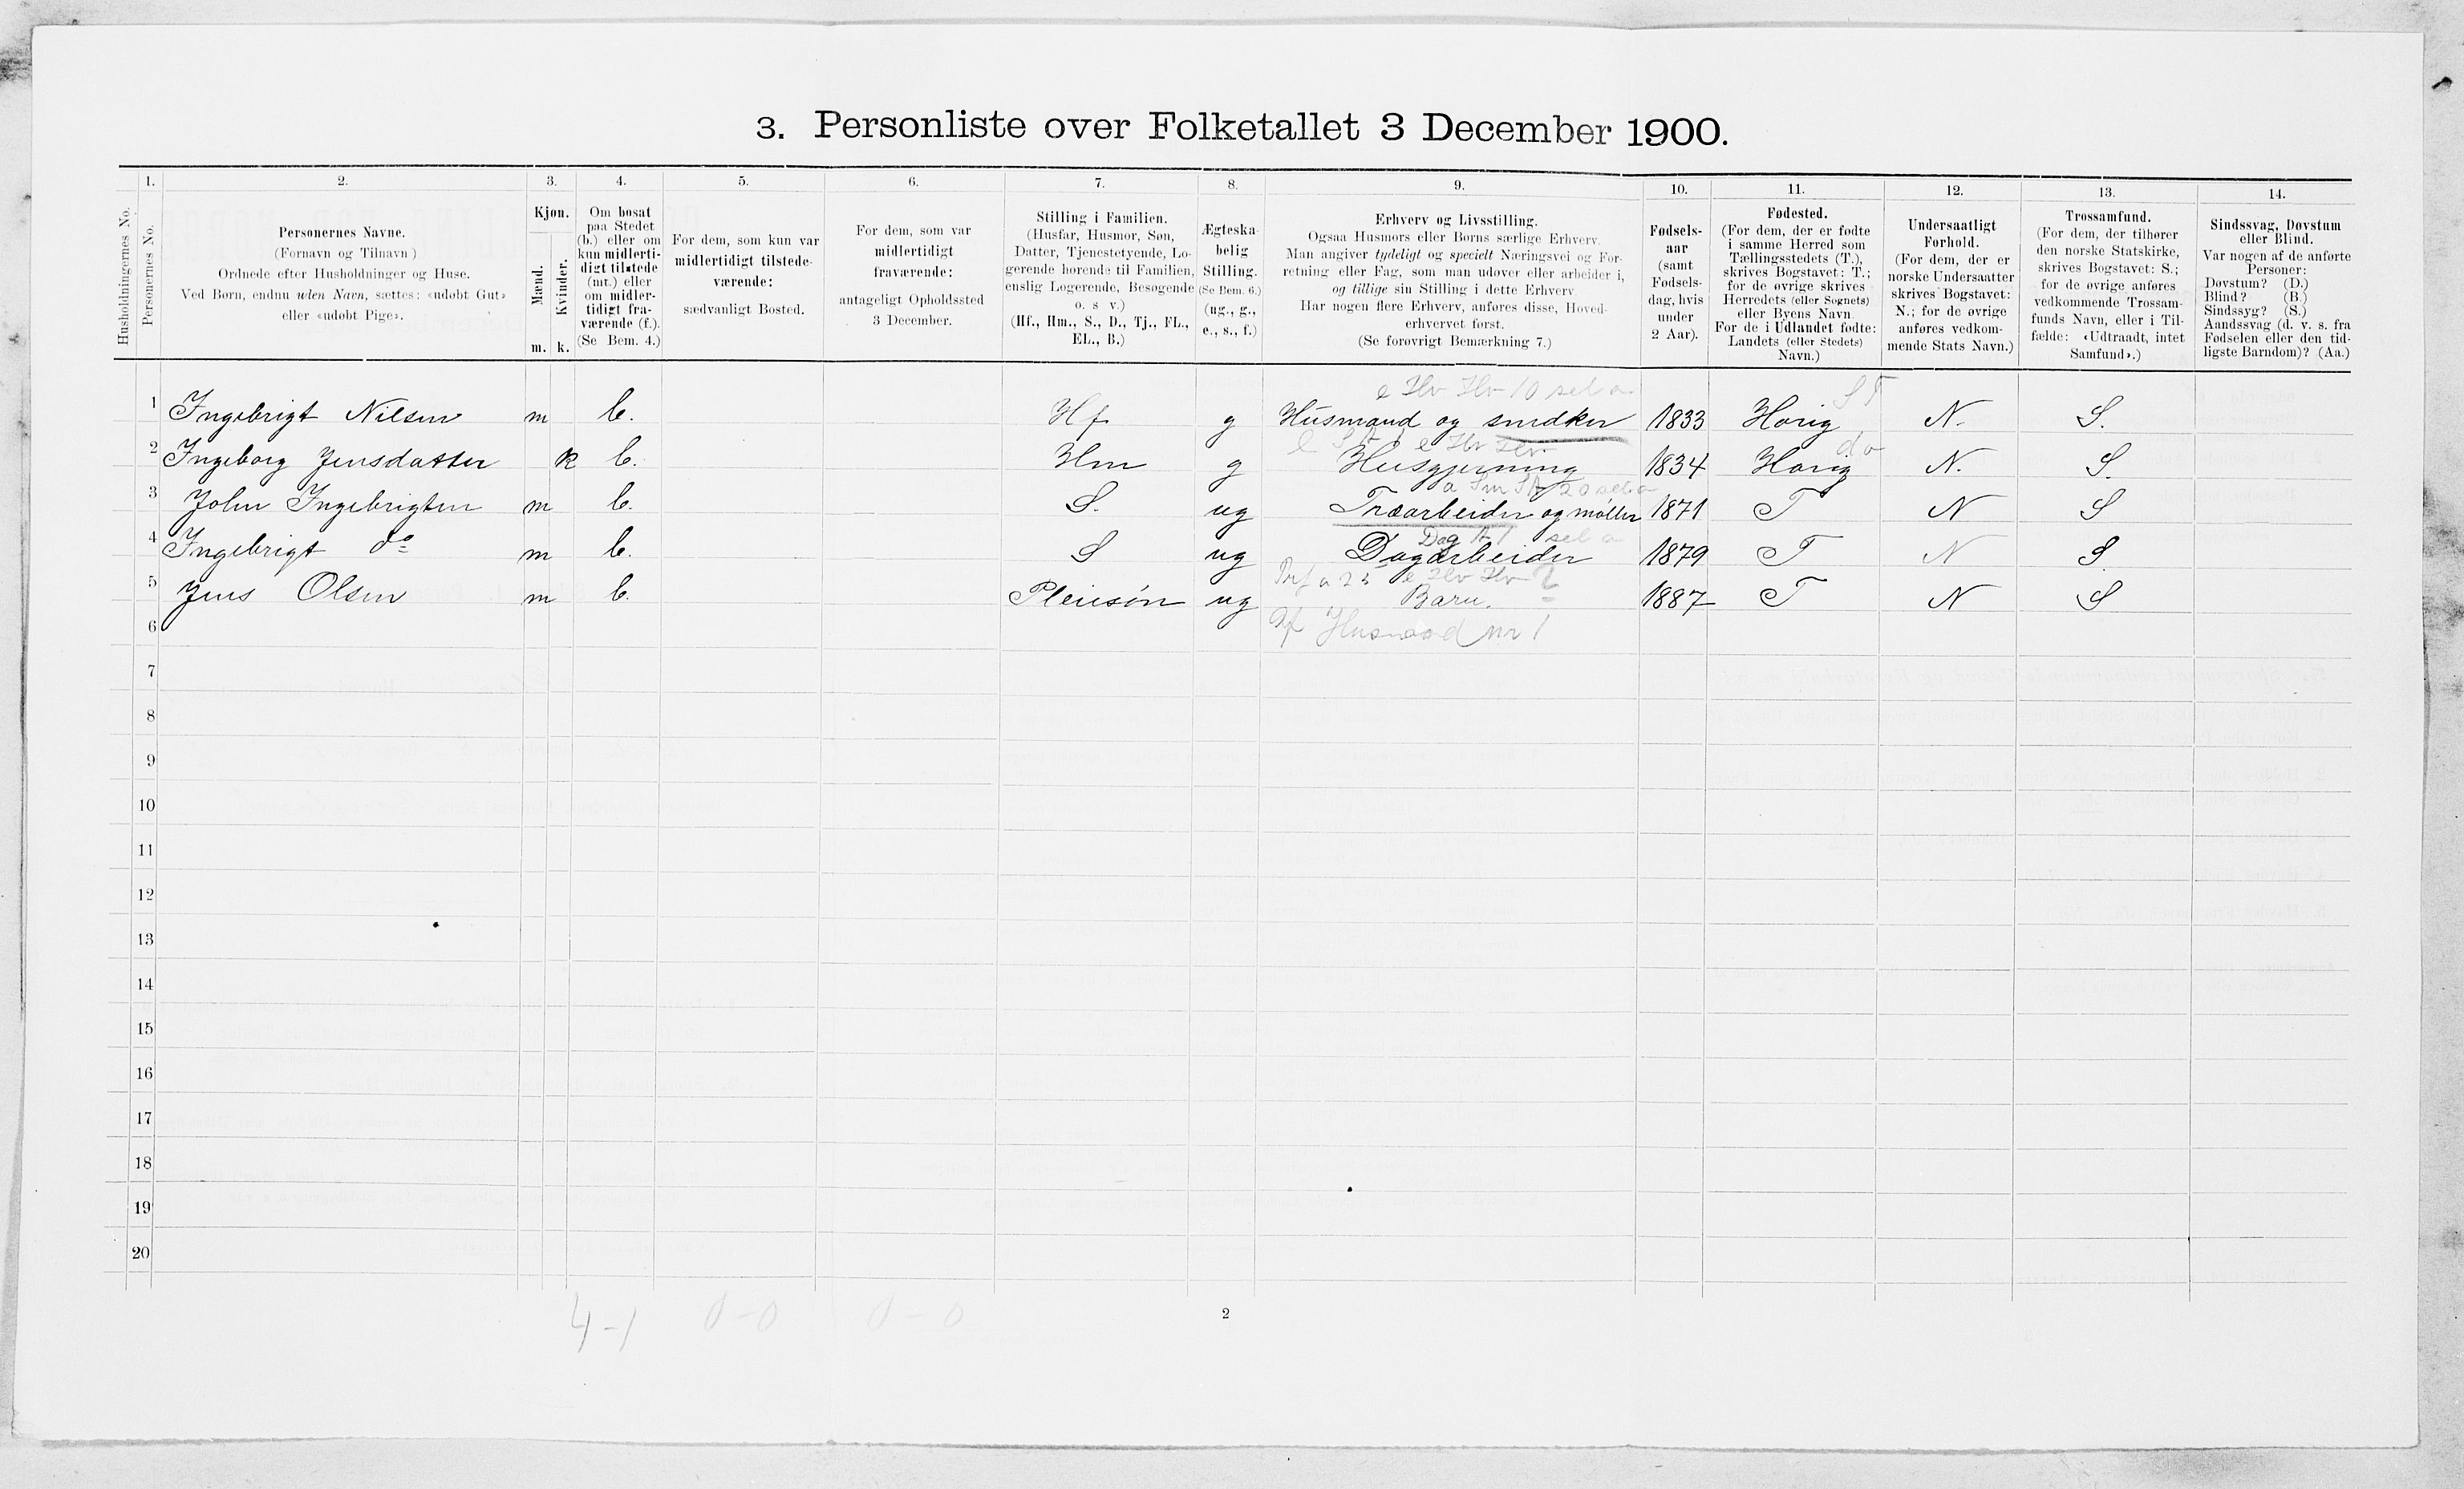 3. Personliste over Folketallet 3 December 1900.
1. 2. 3. 4. 5. 6. 7. 8. 9. 10. 11. 12. 13. 14.
Husholdningernes No.
Personernes No.
Personernes Navne.
(Fornavn og Tilnavn)
Ordnede efter Husholdninger og Huse.
Ved Børn, endnu uden Navn, sættes: «udøbt Gut»
eller «udøbt Pige».
Kjøn.
Mænd.
Kvinder.
m. k.
Om bosat
paa Stedet
(b.) eller om
kun midlerti-
digt tilstede
(mt.) eller
om midler-
tidigt fra-
værende (f.).
(Se Bem. 4.)
For dem, som kun var
midlertidigt tilstede-
værende:
sædvanligt Bosted.
For dem, som var
midlertidigt
fraværende:
antageligt Opholdssted
3 December.
Stilling i Familien.
(Husfar, Husmor, Søn,
Datter, Tjenestetyende, Lo-
gerende hørende til Familien,
enslig Logerende, Besøgende
o. s v.)
(Hf., Hm., S., D., Tj., FL.,
EL., B.)
Ægteska-
belig
Stilling.
(Se Bem. 6.)
(ug., g.,
e., s., f.)
Erhverv og Livsstilling.
Ogsaa Husmors eller Børns særlige Erhverv.
Man angiver tydeligt og specielt Næringsvei og For-
retning eller Fag, som man udøver eller arbeider i,
og tillige sin Stilling i dette Erhverv.
Har nogen flere Erhverv, anføres disse, Hoved-
erhvervet først.
(Se forøvrigt Bemærkning 7.)
Fødsels-
aar
(samt
Fødsels-
dag, hvis
under
2 Aar).
Fødested.
(For dem, der er fødte
i samme Herred som
Tællingsstedets (T.),
skrives Bogstavet: T.;
for de øvrige skrives
Herredets (eller Sognets)
eller Byens Navn.
For de i Udlandet fødte:
Landets (eller Stedets)
Navn.)
Undersaatligt
Forhold.
(For dem, der er
norske Undersaatter
skrives Bogstavet:
N.; for de øvrige
anføres vedkom-
mende Stats Navn.)
Trossamfund.
(For dem, der tilhører
den norske Statskirke,
skrives Bogstavet: S.;
for de øvrige anføres
vedkommende Trossam-
funds Navn, eller i Til-
fælde: «Udtraadt, intet
Samfund».)
Sindssvag, Døvstum
eller Blind.
Var nogen af de anførte
Personer:
Døvstum? (D.)
Blind? (B.)
Sindssyg? (S.)
Aandssvag (d. v. s. fra
Fødselen eller den tid-
ligste Barndom)? (Aa.)
e Hv Hv 10 sel a ST
1 Ingebrigt Nilsen m b. Hf g Husmand og snedker 1833 Horig N. S.
e Hv Hv do
2 Ingeborg Jensdatter k b. Hm g Husgjerning 1834 Horig N. S.
3 John Ingebrigtsen m b. S. ug Træarbeider og møller 1871 T N S
Dag sel a
4 Ingebrigt do m b. S ug Dagarbeider 1879 T N S.
e Hv Hv
5 Jens Olsen m b. Pleiesøn ug Barn. 1887 T N S
6 Hf Husmand nr 1
7
8
9
10
11
12
13
14
15
16
17
18
19
20
4-1 0-0 0-0
2